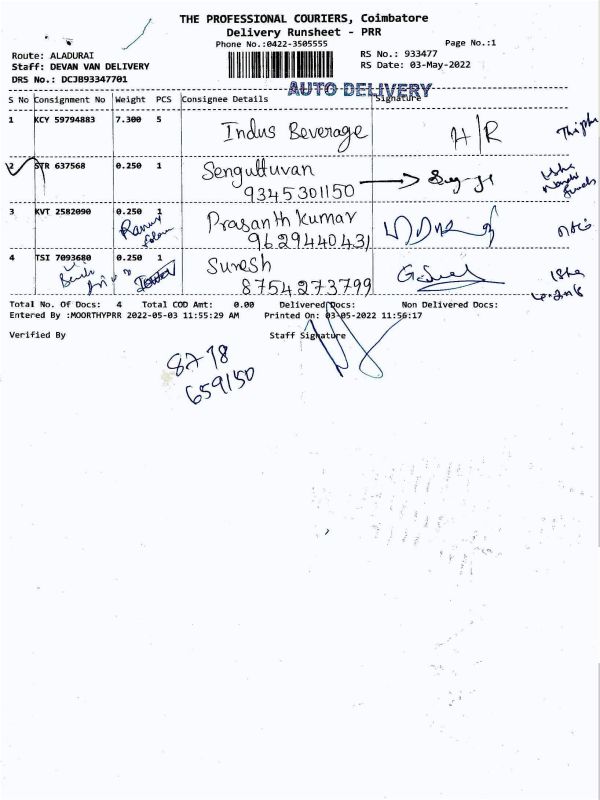 THE PROFESSIONAL COURIERS, Coimbatore
Delivery Runsheet - PRR
Phone No.:0422-3505555
Page No.:1
Route: ALADURAI
RS No.: 933477
Staff: DEVAN VAN DELIVERY
RS Date: 03-May-2022
DRS No.: DCJB93347701
AUTO DELIVERY
S No Consignment No Weight PCS Consignee Details Signature
1 KCY 59794883 7.300 5 Indus Beverage H/R
2 STR 637568 0.250 1 Senguttuvan
9345301150
3 KVT 2582090 0.250 1 Prasanth Kumar
9629440431
4 TSI 7093680 0.250 1 Suresh
8754273799
Total No. Of Docs: 4 Total COD Amt: 0.00 Delivered Docs: Non Delivered Docs:
Entered By :MOORTHYPRR 2022-05-03 11:55:29 AM Printed On: 03-05-2022 11:56:17
Verified By Staff Signature
8778
659150